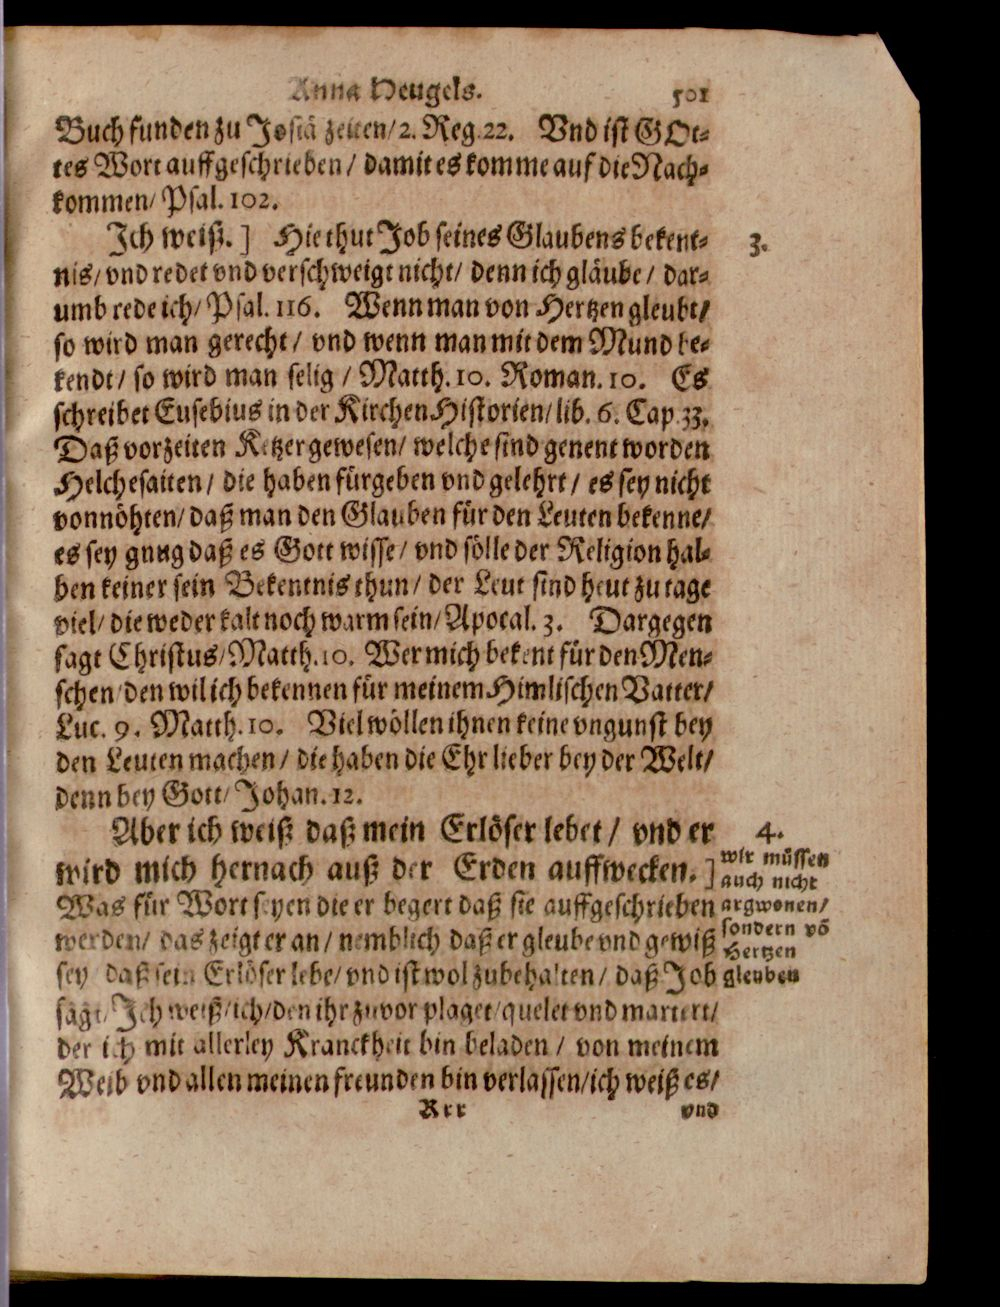 Anna Heugels. 501
Buch funden zu Josiä zeiten/2. Reg.22. Vnd ist GOt-
tes Wort auffgeschrieben / damit es komme auf die Nach-
kommen/ Psal. 102.
Ich weiß. ] Hie thut Job seines Glaubens bekent-
3.
nis/ vnd redet vnd verschweigt nicht/ denn ich gläube / dar-
umb rede ich/ Psal. 116. Wenn man von Hertzen gleubt/
so wird man gerecht / vnd wenn man mit dem Mund be-
kendt / so wird man selig / Matth. 10. Roman. 10. Es
schreibet Eusebius in der Kirchen Historien/ lib. 6. Cap. 33.
Daß vorzeiten Ketzer gewesen/ welche sind genent worden
Helchesaiten / die haben fürgeben vnd gelehrt / es sey nicht
vonnöhten/ daß man den Glauben für den Leuten bekenne/
es sey gnug daß es Gott wisse / vnd sölle der Religion hal-
ben keiner sein Bekentnis thun / der Leut sind heut zu tage
viel/ die weder kalt noch warm sein/ Apocal. 3. Dargegen
sagt Christus/ Matth. 10. Wer mich bekent für den Men-
schen/ den wil ich bekennen für meinem Himlischen Vatter/
Luc. 9. Matth. 10. Viel wöllen ihnen keine vngunst bey
den Leuten machen / die haben die Ehr lieber bey der Welt/
denn bey Gott/ Johan. 12.
Aber ich weiß daß mein Erlöser lebet / vnd er
wird mich hernach auß der Erden auffwecken. ]
4.
wir müssen
auch nicht
argwonen/
sondern võ
Hertzen
gleuben
Was für Wort seyen die er begert daß sie auffgeschrieben
werden/ das zeigt er an / nemblich daß er gleube vnd gewiß
sey daß sein Erlöser lebe/ vnd ist wol zubehalten / daß Job
sagt/ Ich weiß/ ich/ den ihr zuvor plaget/ quelet vnd martert/
der ich mit allerley Kranckheit bin beladen / von meinem
Weib vnd allen meinen freunden bin verlassen/ ich weiß es/
Rrr vnd